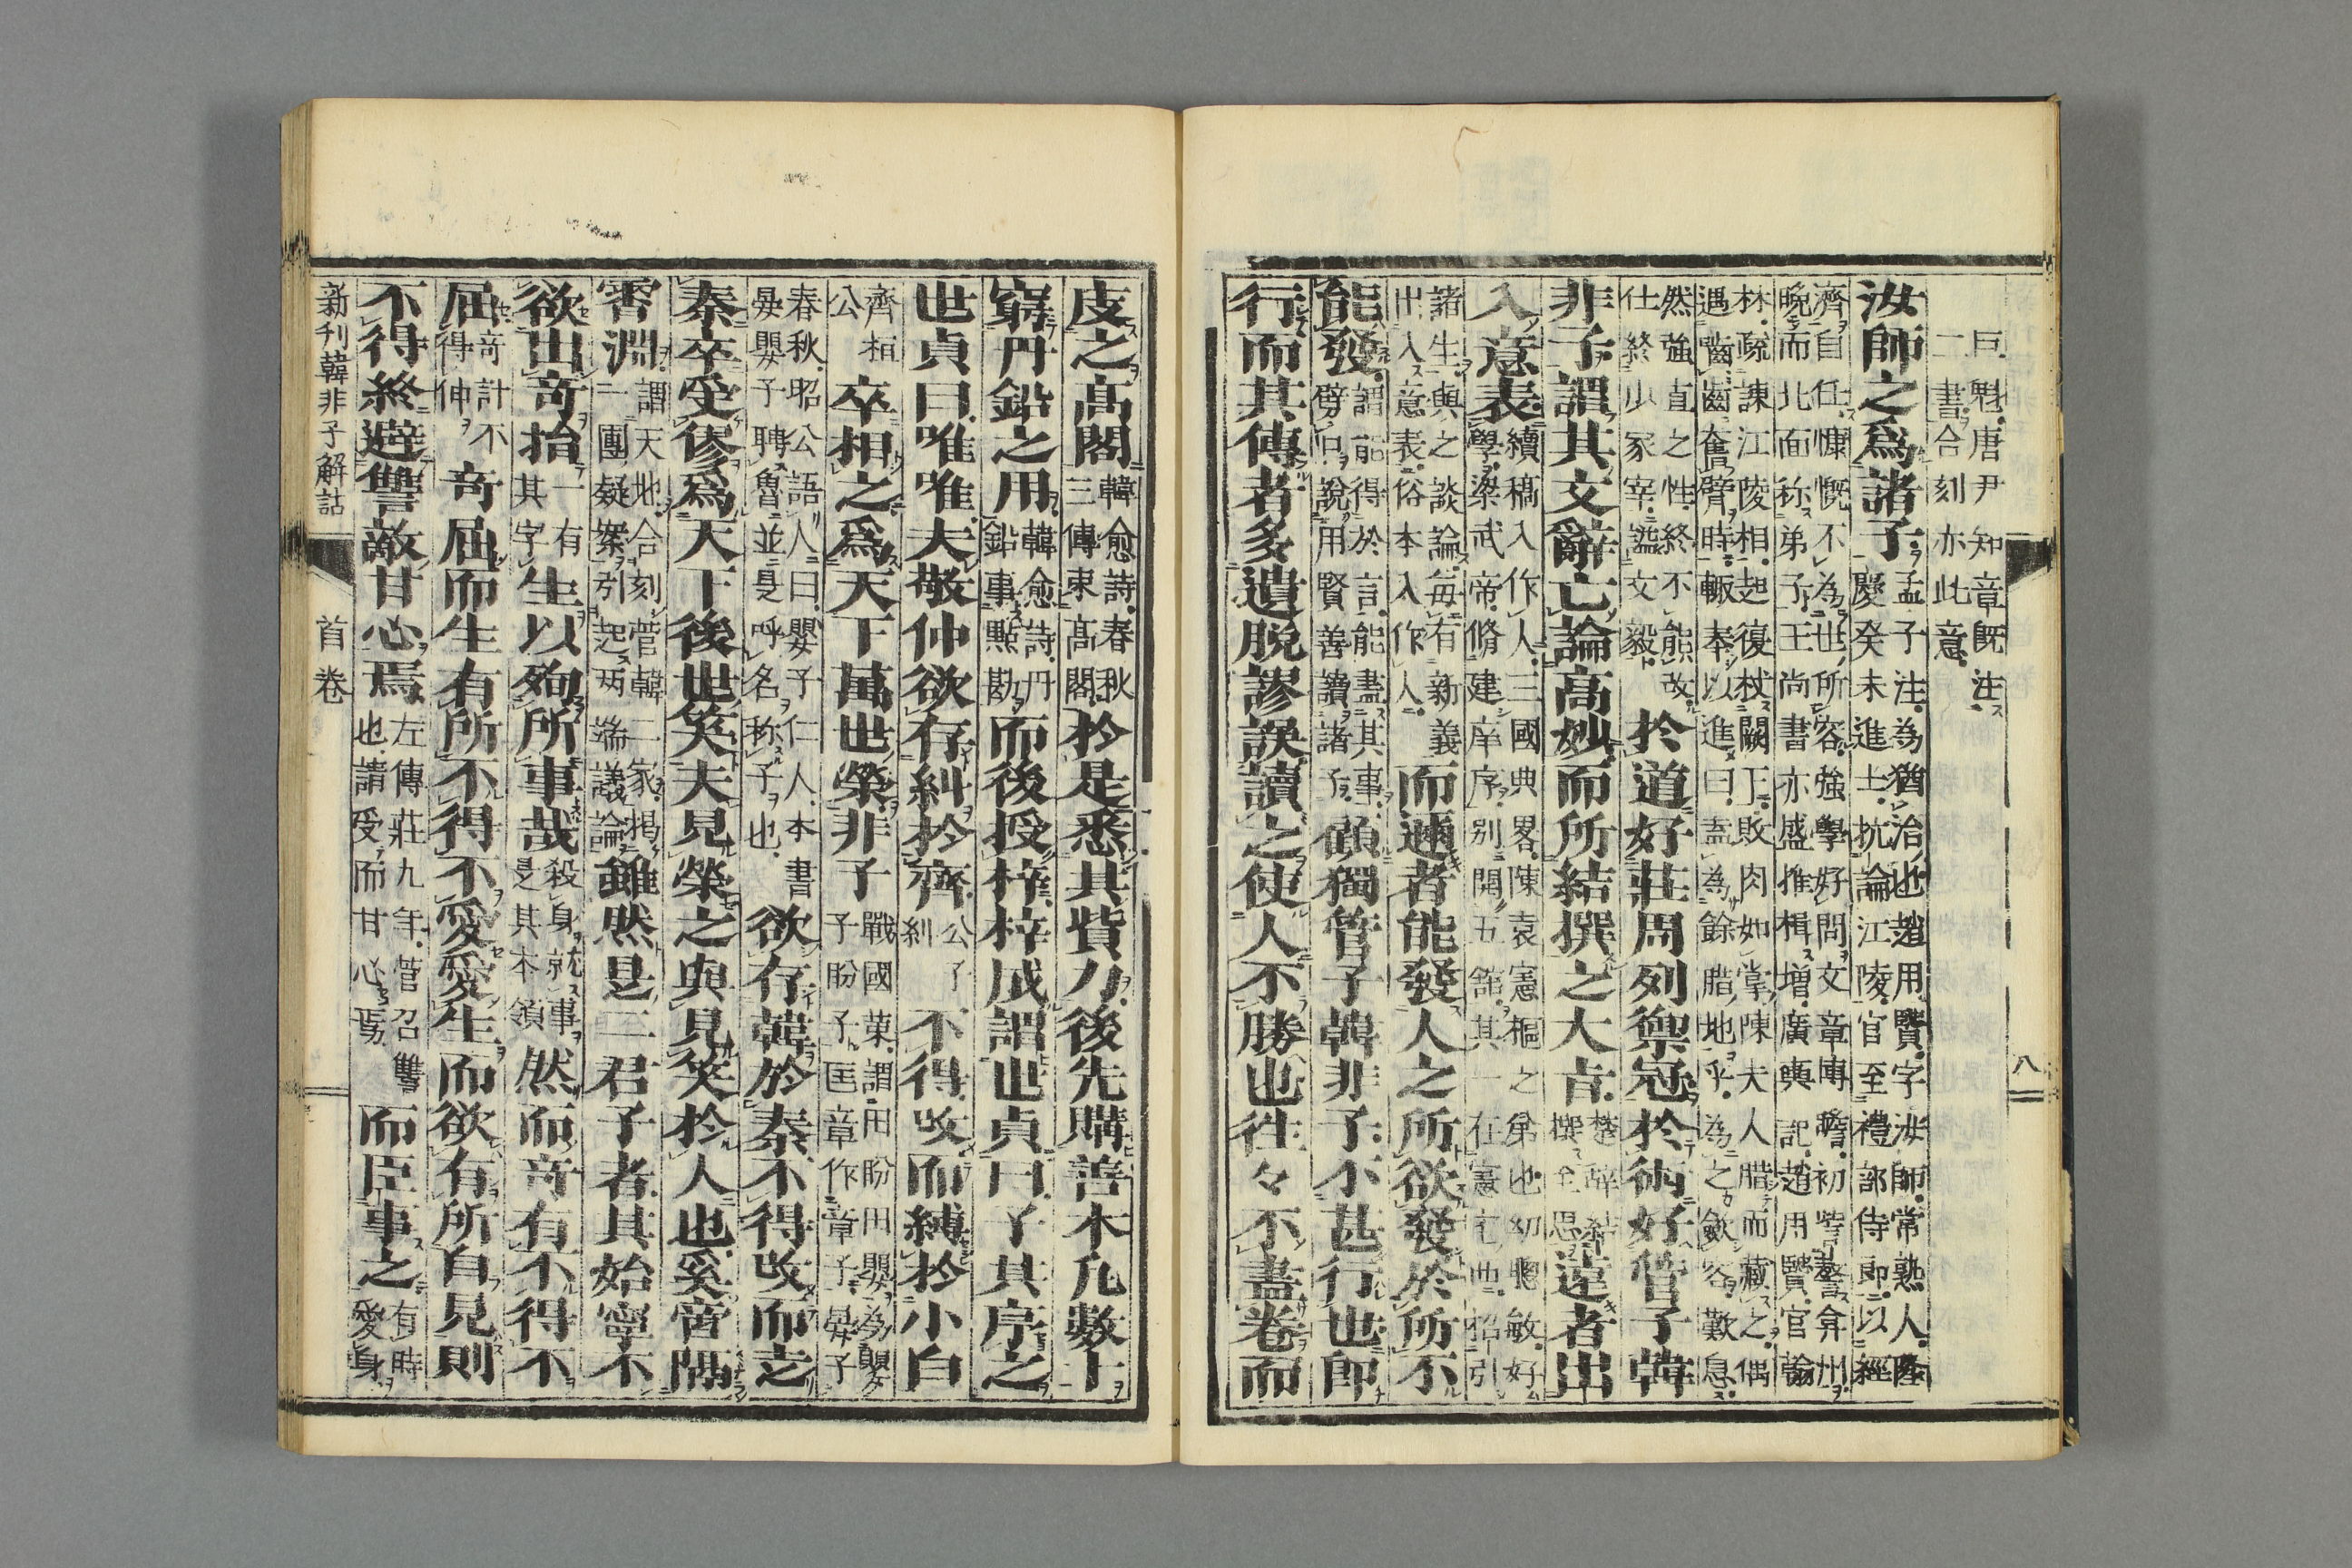 巨魁唐尹知章既注
二書合刻亦此意
汝師之爲諸子
孟子注為猶治也趙用賢字汝師常熟人隆
慶癸未進士抗論江陵官至禮部侍郎以經
濟自任慷慨不為世所容強學好問文章博贍初訾謷弇州
晩而北面称弟子王尚書亦盛推楫増廣輿記趙用賢官翰
林疏諫江陵相起復杖闕丁敗肉如掌陳夫人腊而藏之偶
遇嚙齒奮臂時輙奉以進曰盍為餘腊地乎為之斂容歎息
然強直之性終不能改
仕終少冢宰謚文毅
於道好莊周列禦冦於術好管子韓
非子謂其文辭亡論高妙而所結撰之大
楚辞結
撰至思
遠者出
入意表
續稿入作人三國典畧陳袁憲樞之弟也幼聰敏好
學梁武帝脩建庠序別開五舘其一在憲宅西招引
諸生與之談論毎有新義
出入意表俗本入作人
而邇者能發人之所欲發於所不
能發
謂能得於言能盡其事
劈口說用賢善讀諸子
顧獨管子韓非子不甚行也即
行而其傳者多遺脫謬誤讀之使人不勝也往々不盡卷而
八
庋之髙閣
韓愈詩春秋
三傳束髙閣
於是悉其貲力後先購善本凡數十
窮丹鉛之用
韓愈詩丹
鉛事㸃勘
而後授梓梓成謂世貞曰子其序之
世貞曰唯唯夫敬仲欲存糾於齊
公子
糾
不得攺而縛於小白
齊桓
公
卒相之爲天下萬世榮非子
戰國策謂田盼田嬰為
子盼子匡章作章子晏子
春秋昭公語人曰嬰子仁人本書
晏嬰子聘魯並是呼名称子也
欲存韓於秦不得攺而走
秦卒受僇爲天下後世笑夫見榮之與見笑於人也奚啻隅
霄淵
謂天地合刻管韓二家掲
一團疑案引起兩端議論
雖然是二君子者其始寧不
欲出竒抬
一有
其字
生以殉所事哉
殺身就事
是其本領
然而竒有不得不
屈
竒計不
得伸
竒屈而生有所不得不愛愛生而欲有所自見則
不得終避讐敵甘心焉
左傳莊九年管召讐
也請受而甘心焉
而臣事之
有時
愛身
新刊韓非子解詁
首卷